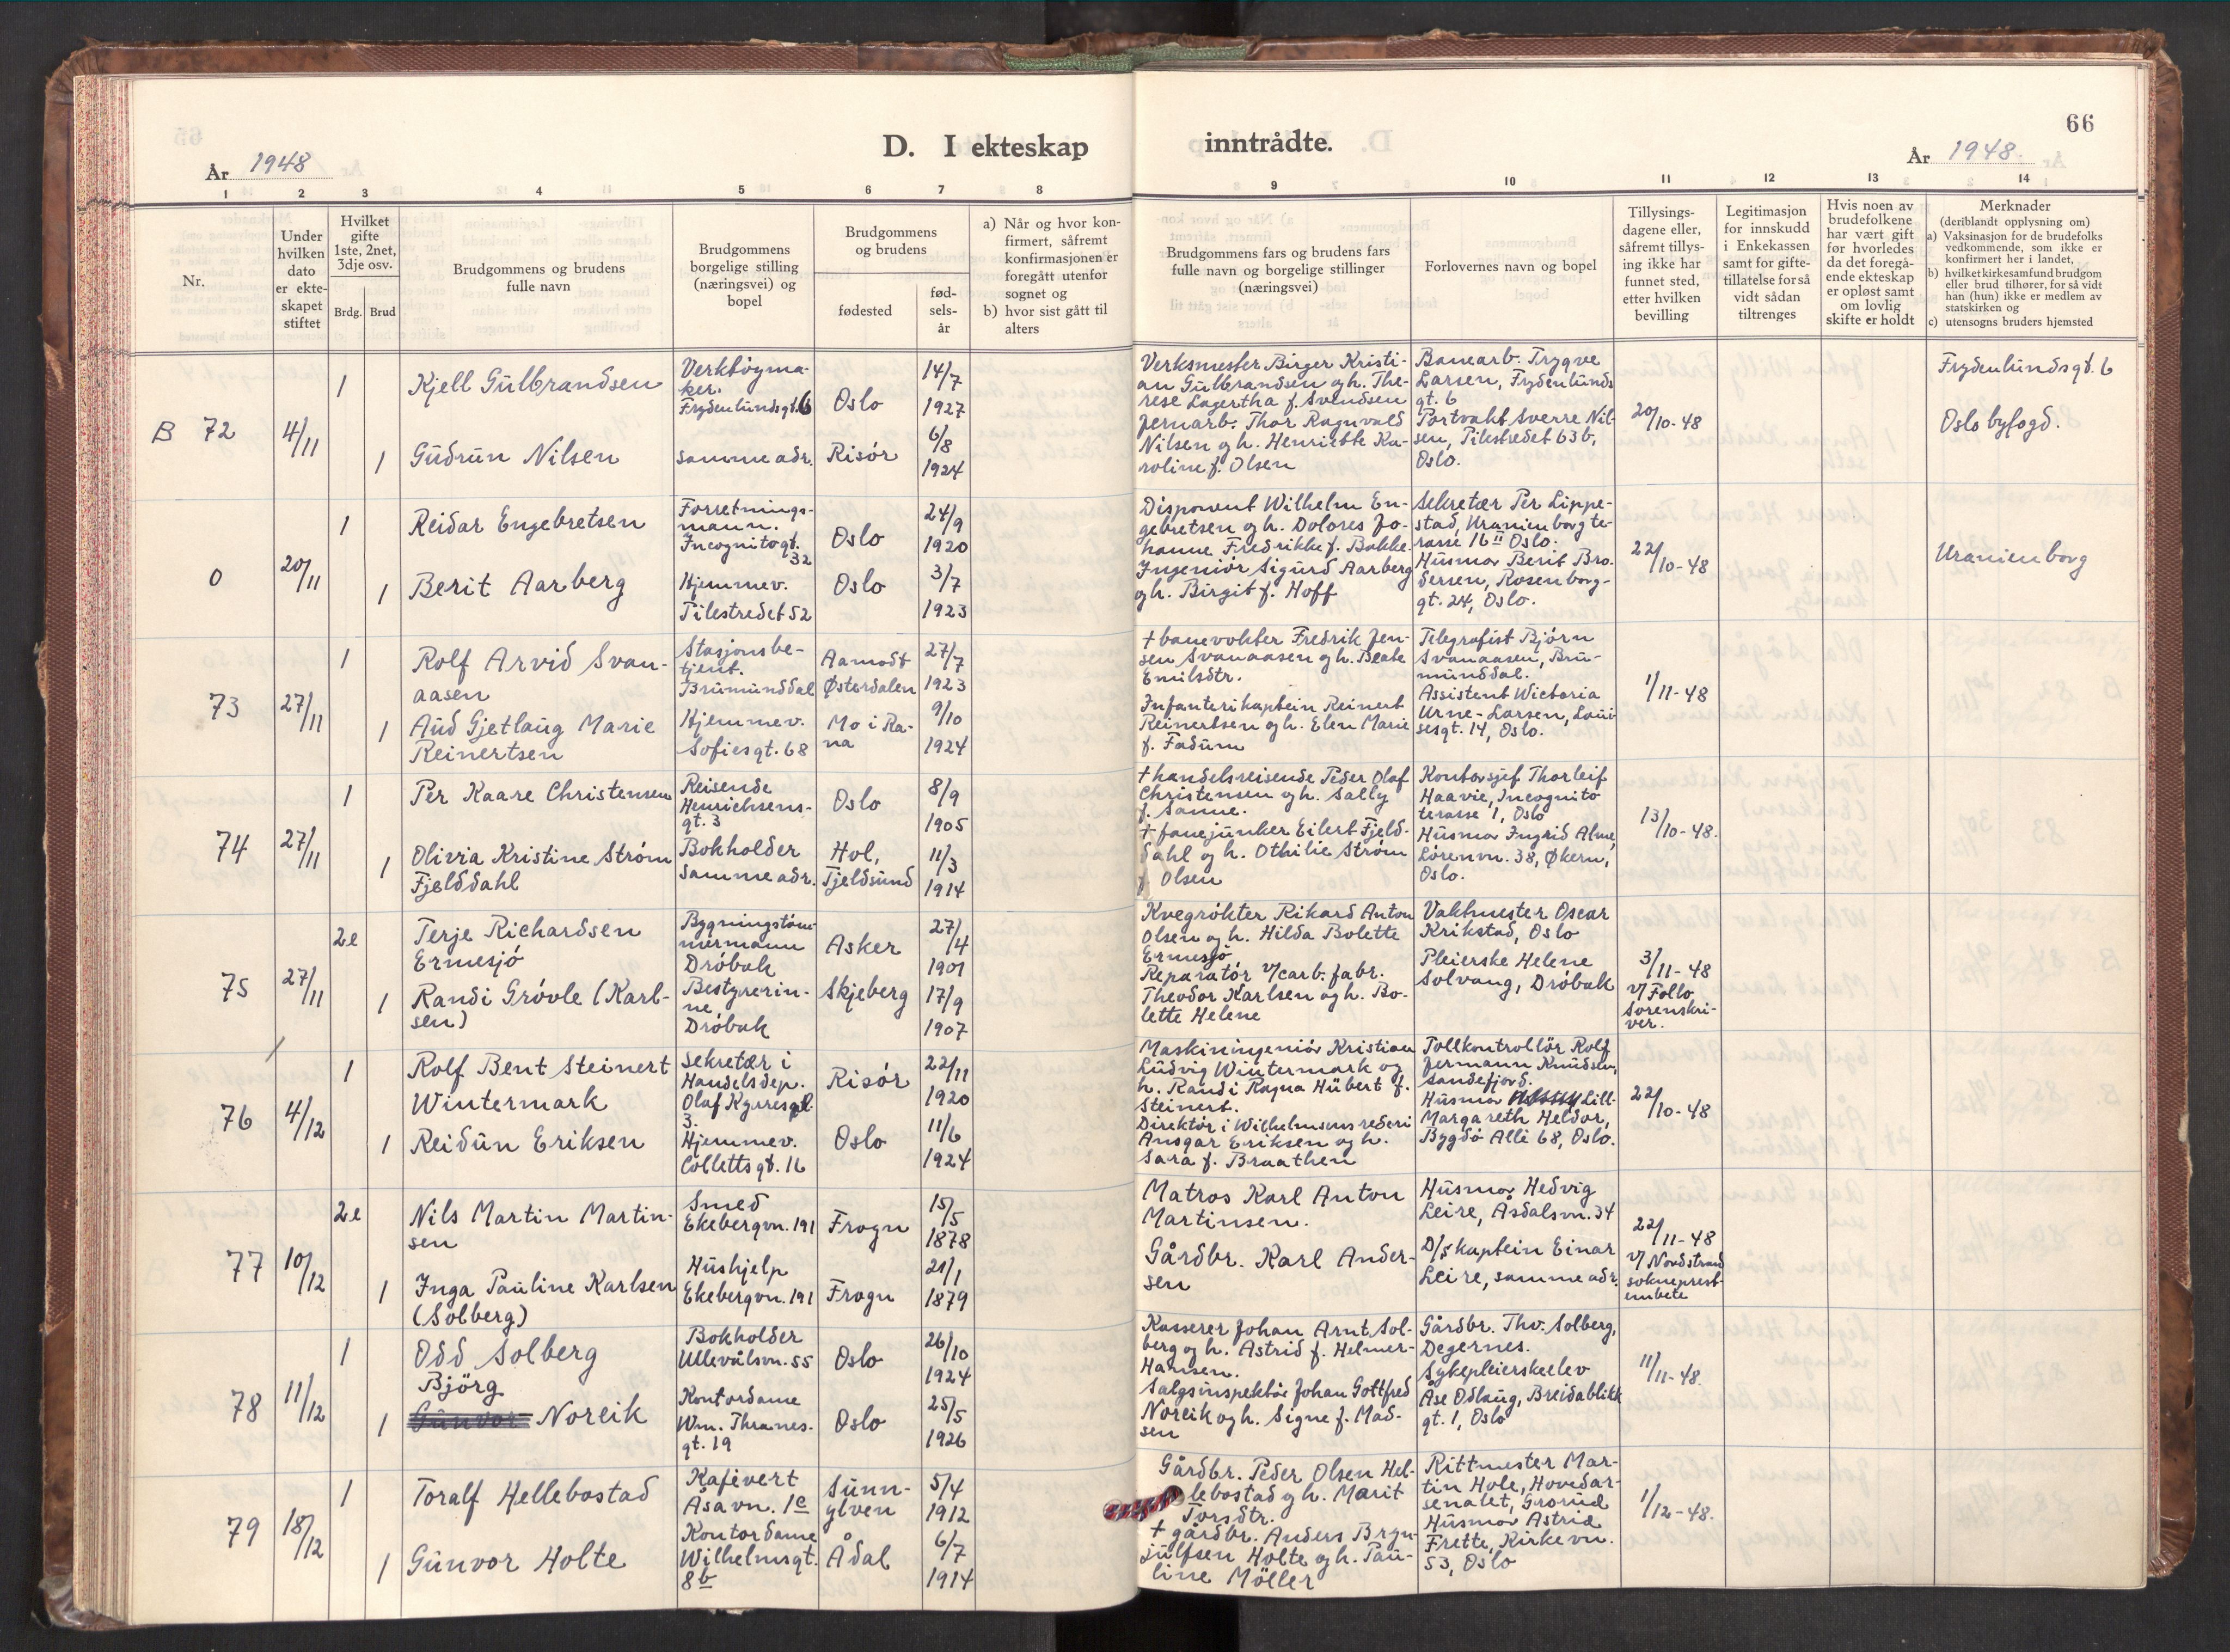 D. I ekteskap inntrådte.
66
År 1948
År 1948.
1 2 3 4 5 6 7 8 9 10 11 12 13 14
Nr.
Under
hvilken
dato
er ekte-
skapet
stiftet
Hvilket
gifte
1ste, 2net,
3dje osv.
Brdg. Brud
Brudgommens og brudens
fulle navn
Brudgommens
borgelige stilling
(næringsvei) og
bopel
Brudgommens
og brudens
fødested
fød-
sels-
år
a) Når og hvor kon-
firmert, såfremt
konfirmasjonen er
foregått utenfor
sognet og
b) hvor sist gått til
alters
Brudgommens fars og brudens fars
fulle navn og borgelige stillinger
(næringsvei)
Forlovernes navn og bopel
Tillysings-
dagene eller,
såfremt tillys-
ing ikke har
funnet sted,
etter hvilken
bevilling
Legitimasjon
for innskudd
i Enkekassen
samt for gifte-
tillatelse for så
vidt sådan
tiltrenges
Hvis noen av
brudefolkene
har vært gift
før hvorledes
da det foregå-
ende ekteskap
er opløst samt
om lovlig
skifte er holdt
Merknader
(deriblandt opplysning om)
a) Vaksinasjon for de brudefolks
vedkommende, som ikke er
konfirmert her i landet,
b) hvilket kirkesamfund brudgom
eller brud tilhører, for så vidt
han (hun) ikke er medlem av
statskirken og
c) utensogns bruders hjemsted
B 72
4/11
1
Kjell Gulbrandsen
Verktøyma-
ker.
Frydenlundsgt. 6
Oslo
14/7
1927
1
Gudrun Nilsen
samme adr.
Risør
6/8
1924
Verksmester Birger Kristi-
an Gulbrandsen og h. The-
rese Lagertha f. Svendsen
Jernarb. Thor Ragnvald
Nilsen og h. Henriette Ka-
roline f. Olsen
Banearb. Trygve
Larsen, Frydenlunds
gt. 6
Portvakt Sverre Nil-
sen, Pilestredet 63b,
Oslo.
20/10-48
Frydenlundsgt. 6
Oslo byfogd.
0
20/11
1
Reidar Engebretsen
Forretnings-
mann.
Incognitogt.
32
Oslo
24/9
1920
1
Berit Aarberg
Hjemmev.
Pilestredet 52
Oslo
3/7
1923
Disponent Wilhelm En-
gebretsen og h. Dolores Jo-
hanne Fredrikke f. Bakke.
Ingeniør Sigurd Aarberg
og h. Birgit f. Hoff
Sekretær Per Lippe-
stad, Uranienborg te-
rasse 16 II Oslo.
Husmor Berit Bro-
dersen, Rosenborg-
gt. 24, Oslo.
22/10-48
Uranienborg
73
27/11
1
Rolf Arvid Svan-
aasen
Stasjonsbe-
tjent.
Brumunddal
Aamodt
Østerdalen
27/7
1923
1
Aud Gjetlaug Marie
Reinertsen
Hjemmev.
Sofiesgt. 68
Mo i Ra-
na
9/10
1924
+ banevokter Fredrik Jen-
sen Svanaasen og h. Beate
Emilsdtr.
Infanterikaptein Reinert
Reinertsen og h. Elen Marie
f. Fadum
Telegrafist Bjørn
Svanaasen, Bru-
munddal.
Assistent Wictoria
Urne-Larsen, Loui
sesgt. 14, Oslo.
1/11-48
74
27/11
1
Per Kaare Christensen
Reisende
Henrichsens-
gt. 3
Oslo
8/9
1905
1
Olivia Kristine Strøm
Fjelddahl
Bokholder
Samme adr.
Hol,
Tjeldsund
11/3
1914
+ handelsreisende Peder Olaf
Christensen og h. Sally
f. Sanne.
+ fanejunker Eilert Fjeld-
dahl og h. Othilie Strøm
f. Olsen
Kontorsjef Thorleif
Haavie, Incognito
terasse 1, Oslo
Husmor Ingrid Alme,
Lørenvn. 38, Økern,
Oslo.
13/10-48.
75
27/11
2e
Terje Richardsen
Ermesjø
Bygningstøm-
mermann
Drøbak
Asker
27/4
1901
1
Randi Grøvle (Karl-
sen)
Bestyrerin-
ne,
Drøbak
Skjeberg
17/9
1907
Kvegrøkter Rikard Anton
Olsen og h. Hilda Bolette
Ermesjø
Reparatør v/carb. fabr.
Theodor Karlsen og h. Bo-
lette Helene
Vaktmester Oscar
Krikstad, Oslo
Pleierske Helene
Solvang, Drøbak
3/11-48
v/ Follo
Sorenskri-
ver.
76
4/12
1
Rolf Bent Steinert
Wintermark
Sekretær i
Handelsdep.
Olaf Kyrresgt.
3.
Risør
22/11
1920
1
Reidun Eriksen
Hjemmev.
Collettsgt. 16
Oslo
11/6
1924
Maskiningeniør Kristian
Ludvig Wintermark og
h. Randi Ragna Hubert f.
Steinert.
Direktør i Wilhelmsens rederi
Ansgar Eriksen og h.
Sara f. Braathen
Tollkontrollør Rolf
Hermann Knudsen,
Sandefjord.
Husmor Lill-
Margareth Heldor,
Bygdø Alle 68, Oslo.
22/10-48
77
10/12
2e
Nils Martin Martin-
sen
Smed
Ekebergvn. 191
Frogn
15/5
1878
1
Inga Pauline Karlsen
(Solberg)
Hushjelp
Ekebergvn. 191
Frogn
21/1
1879
Matros Karl Anton
Martinsen.
Gårdbr. Karl Ander-
sen
Husmor Hedvig
Leire, Åsdalsvn. 34
D/S kaptein Einar
Leire, samme adr.
22/11-48
v/ Nordstrand
sogneprest-
embete
78
11/12
1
Odd Solberg
Bokholder
Ullevålsvn. 55
Oslo
26/10
1924
1
Björg
Gunvor Noreik
Kontordame
Wm. Thranes-
gt. 19
Oslo
25/5
1926
Kasserer Johan Arnt Sol-
berg og h. Astrid f. Helmer-
Hansen.
Salgsinspektør Johan Gottfred
Noreik og h. Signe f. Mad-
sen
Gårdbr. Thv. Solberg,
Degernes.
Sykepleierskeelev
Åse Odlaug, Breidablikk
gt. 1, Oslo
11/11-48.
79
18/12
1
Toralf Hellebostad
Kafévert
Åsavn. 1e
Sunn-
ylven
5/4
1912
1
Gunvor Holte
Kontordame
Wilhelmsgt.
8b
Ådal
6/7
1914
Gårdbr. Peder Olsen Hel-
lebostad og h. Marit
Torsdtr.
+ gårdbr. Anders Bryn-
julfsen Holte og h. Pau-
line Möller
Rittmester Mar-
tin Hole, Hovedar-
senalet, Grorud
Husmor Astrid
Frette, Kirkevn.
53, Oslo
1/12-48.